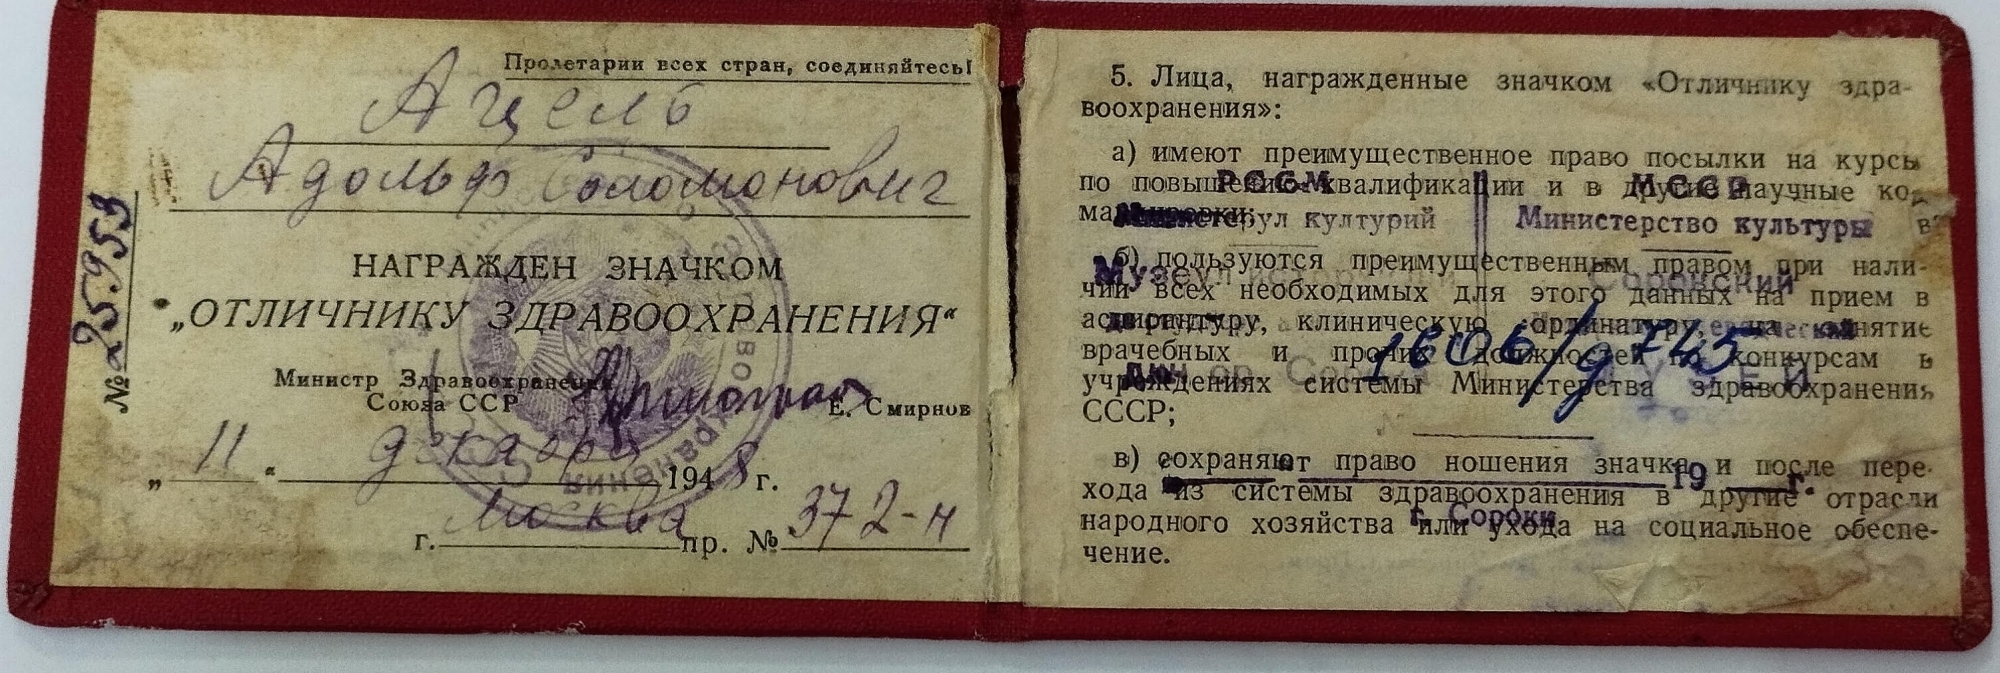 Пролетарии всех стран, соединяйтесь!
Ацель
Адольф Соломонович
НАГРАЖДЕН ЗНАЧКОМ
„ОТЛИЧНИКУ ЗДРАВООХРАНЕНИЯ“
Министр Здравоохранения
Союза ССР
Е. Смирнов
„11“ декабря 1948 г.
г. Москва пр. № 372-н
№ 25953
5. Лица, награжденные значком «Отличнику здра-
воохранения»:
а) имеют преимущественное право посылки на курсы
по повышению квалификации и в другие научные ко-
мандировки;
б) пользуются преимущественным правом при нали-
чии всех необходимых для этого данных на прием в
аспирантуру, клиническую ординатуру, на занятие
врачебных и прочих должностей по конкурсам в
учреждениях системы Министерства здравоохранения
СССР;
в) сохраняют право ношения значка и после пере-
хода из системы здравоохранения в другие отрасли
народного хозяйства или ухода на социальное обеспе-
чение.
РССМ
културий
Музеул
ор.
МССР
Министерство культуры
Сорокский
МУЗЕЙ
19 г.
г. Сороки